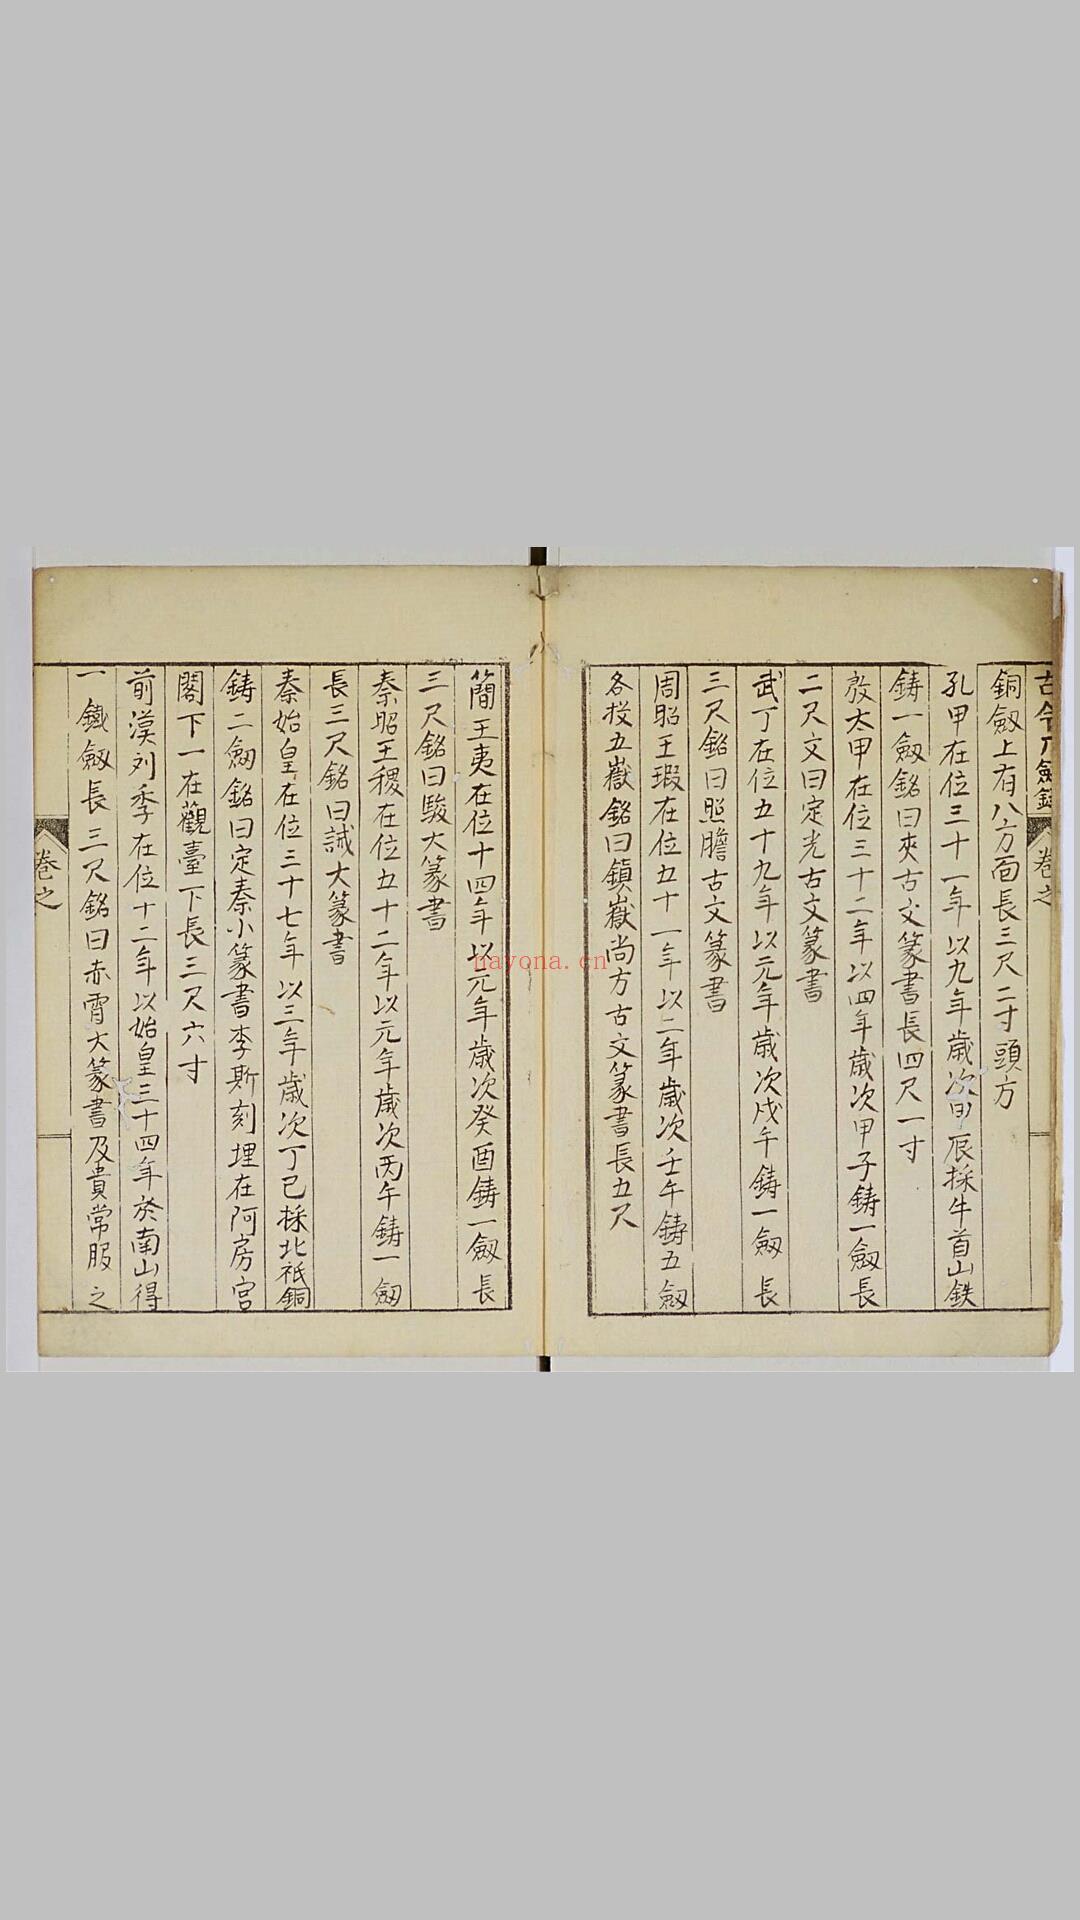 古今刀劍錄 卷之
銅劔上有八方面長三尺二寸頭方
孔甲在位三十一年以九年歲次甲辰採牛首山鉄
鋳一劔銘曰夾古文篆書長四尺一寸
殷太甲在位三十二年以四年歲次甲子鋳一劔長
二尺文曰定光古文篆書
武丁在位五十九年以元年歲次戊午鋳一劔長
三尺銘曰照膽古文篆書
周昭王瑕在位五十一年以二年歲次壬午鋳五劔
各投五嶽銘曰鎮嶽尚方古文篆書長五尺
簡王夷在位十四年以元年歲次癸酉鋳一劔長
三尺銘曰駿大篆書
秦昭王稷在位五十二年以元年歲次丙午鋳一劔
長三尺銘曰誡大篆書
秦始皇在位三十七年以三年歲次丁巳採北祇銅
鋳二劔銘曰定秦小篆書李斯刻埋在阿房宮
閣下一在觀臺下長三尺六寸
前漢刘季在位十二年以始皇三十四年於南山得
一鐵劔長三尺銘曰赤霄大篆書及貴常服之
卷之
nayona.cn